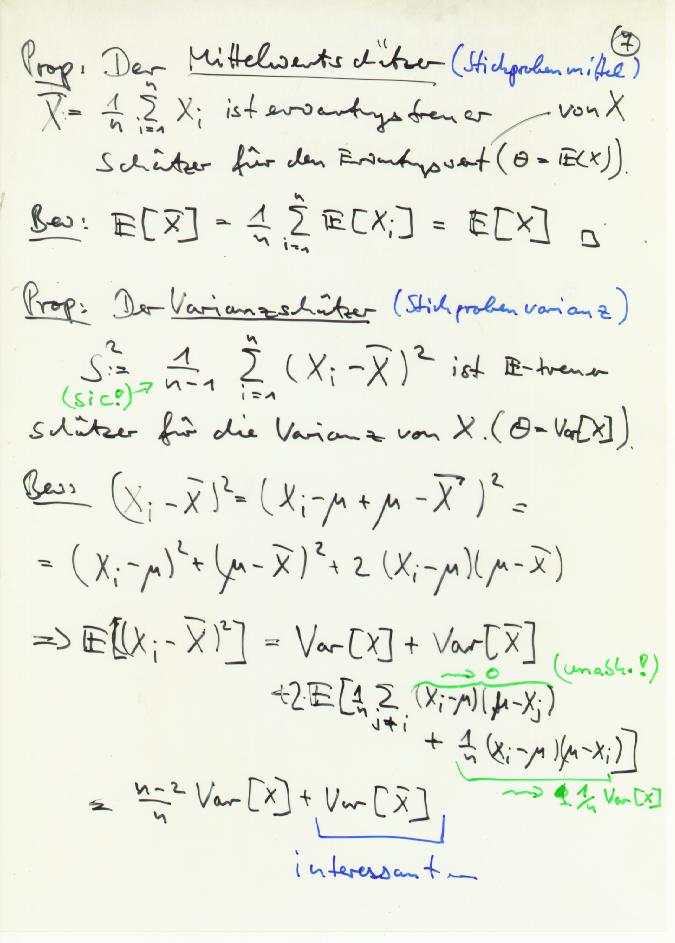 7
Prop: Der Mittelwertschätzer (Stichprobenmittel)
X̄ = 1/n ∑_{i=1}^{n} X_i ist erwartungstreuer von X
Schätzer für den Erwartungswert (θ = 𝔼(X)).
Bew: 𝔼[X̄] = 1/n ∑_{i=1}^{n} 𝔼[X_i] = 𝔼[X] □
Prop: Der Varianzschätzer (Stichprobenvarianz)
S² := 1/(n-1) ∑_{i=1}^{n} (X_i - X̄)² ist 𝔼-treuer
(sic!)
schätzer für die Varianz von X. (θ = Var[X]).
Bew: (X_i - X̄)² = (X_i - μ + μ - X̄)² =
= (X_i - μ)² + (μ - X̄)² + 2 (X_i - μ)(μ - X̄)
=> 𝔼[(X_i - X̄)²] = Var[X] + Var[X̄]
→ 0 (unabh.!)
+2·𝔼[1/n ∑_{j≠i} (X_i - μ)(μ - X_j)
+ 1/n (X_i - μ)(μ - X_i)]
→ 1/n Var[X]
= (n-2)/n Var[X] + Var[X̄]
interessant